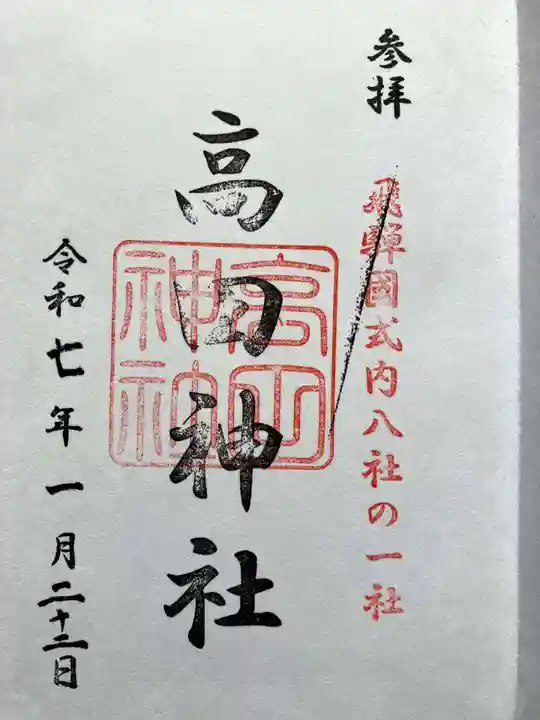 参拝
飛騨國式内八社の一社
高田神社
令和七年一月二十二日